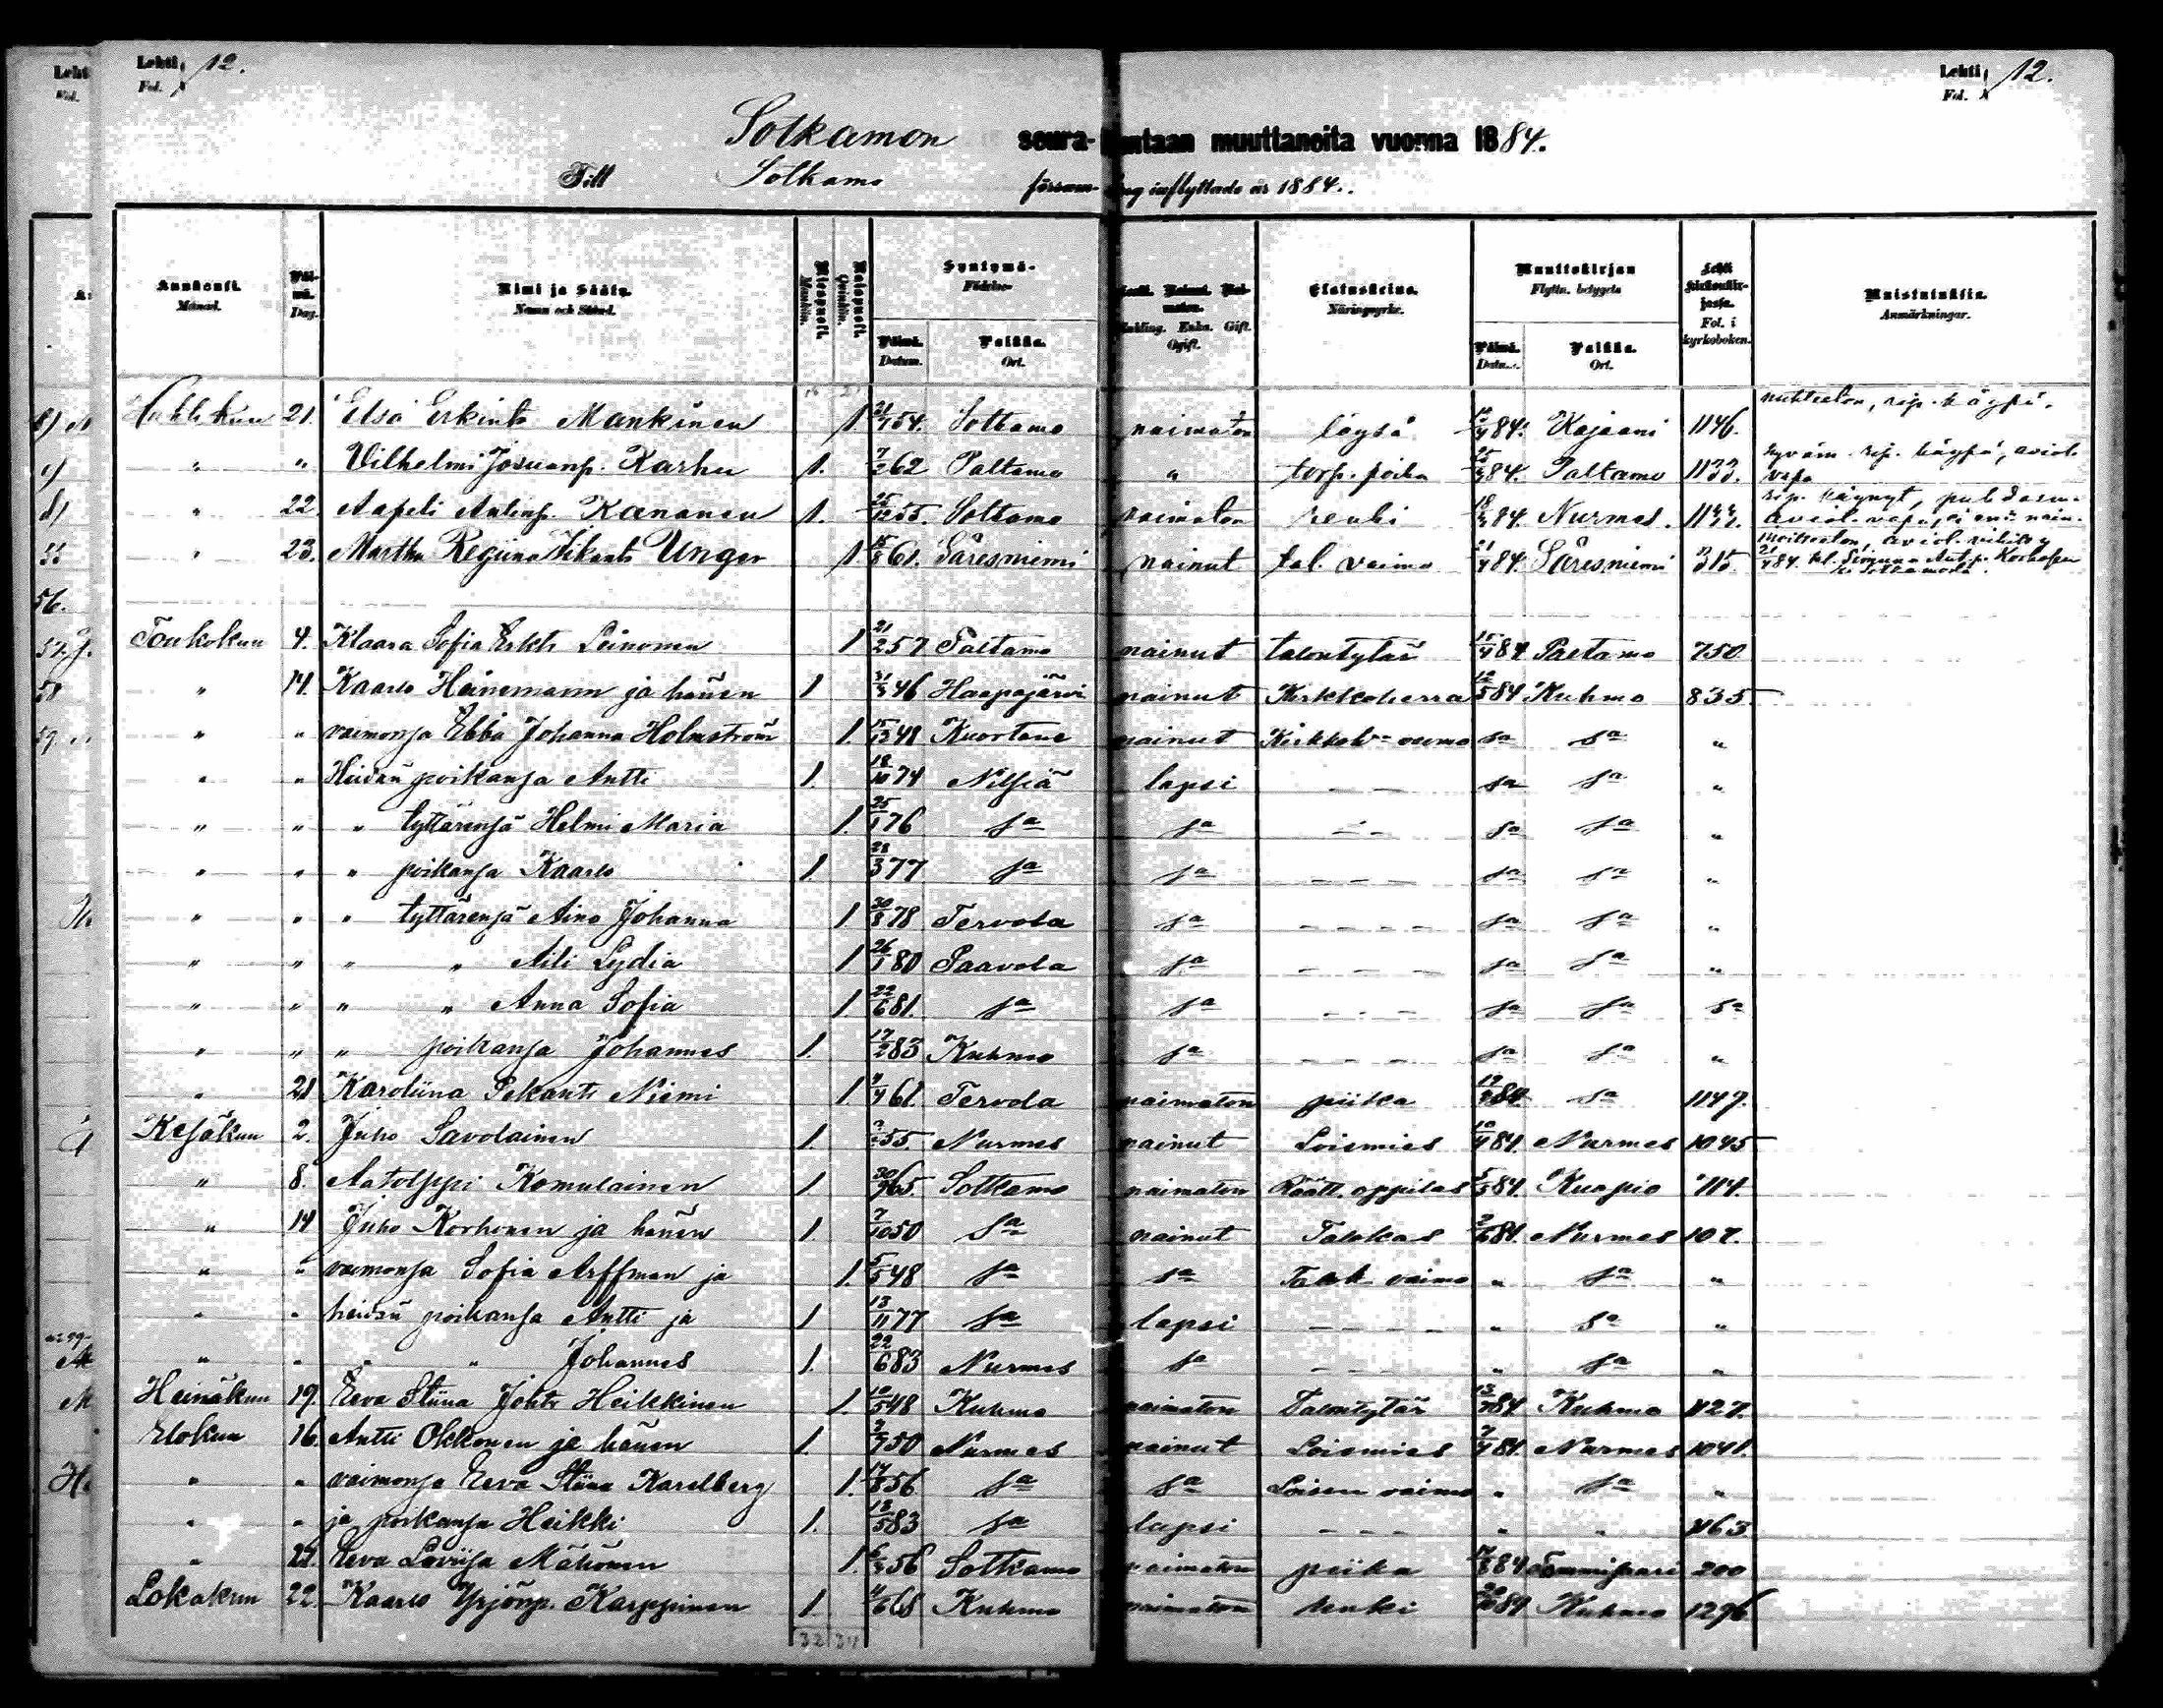 Lehti 12.
Fol.
Lehti 12.
Fol.
Sotkamon seura- kuntaan muuttanoita vuonna 1884.
Till Sotkamo försam- ling inflyttade år 1884.
Kuukausi. Månad.
Päivä. Dag.
Nimi ja Sääty. Namn och Stånd.
Miespuoli. Mankön.
Naispuoli. Qvinkön.
Syntymä- Födelse-
Päivä. Datum.
Paikka. Ort.
Ogift. Enka. Gift.
Elatuskeino. Näringsyrke.
Muuttokirjan Flyttn. betygets
Päivä. Datum.
Paikka. Ort.
Lehti kirkonkirjassa. Fol. i kyrkoboken.
Muistutuksia. Anmärkningar.
Huhtikun 21. Elsa Erkint. Mankinen 1. 54. Sotkamo naimaton löysä 84. Kajaani 1146. nuhteeton, rip. käypä.
" " Vilhelmi Karhu 1. 7/2 62 Paltamo " torp. poika 84. Paltamo 1133. rip. käypä, aviol. vapa
" 22. Aapeli Antinp. Kananen 1. 25/12 55. Sotkamo naimaton renki 84. Nurmes. rip. käynyt,
" 23. Martha Regiina Unger 1. 15/8 61. Säresniemi nainut tal. vaimo 21/4 84. Säresniemi 315.
56.
Toukokun 4. Klaara Sofia Erkt. Leinonen 1 21/2 57 Paltamo nainut talontytär 15/4 84 Paltamo 750
" 14. Kaarlo Heinemann ja hänen 1 31/3 46 Haapajärvi nainut Kirkkoherra 12/5 84 Kuhmo 835
" " vaimonsa Ebba Johanna Holmström 1. 15/12 48 Kuortane nainut sa sa "
" " Heidän poikansa Antti 1. 18/10 74 Nilsiä lapsi - - sa sa "
" " " tyttärensä Helmi Maria 1. 25/1 76 sa sa - - sa sa "
" " " poikansa Kaarlo 1. 28/3 77 sa sa - - - sa sa "
" " " tyttärensä Aino Johanna 1. 30/8 78 Tervola sa - - - - sa sa "
" " " " Aili Lydia 1 26/1 80 Paavola sa - - - sa sa "
" " " " Anna Sofia 1 22/6 81. sa sa - - - sa sa sa
" " " poikansa Johannes 1. 17/2 83 Kuhmo sa - - - - sa sa "
" 21 Karoliina Pekant. Niemi 1. 4/4 61. Tervola naimaton piika 84. sa 1147.
Kesäkun 2. Juho Savolainen 1. 55. Nurmes nainut Loismies 10/4 84. Nurmes 1045
" 8. Aatolppi Komulainen 1 30/9 65 Sotkamo naimaton Räätt. oppilas 5/5 84. Kuopio 714.
" 14 Juho Korhonen ja hänen 1. 7/10 50 sa nainut Talokas 2/6 84. Nurmes 107.
" " vaimonsa Sofia Arffman ja 1. 5/5 48 sa sa vaimo " sa "
" " heidän poikansa Antti ja 1 13/11 77 sa lapsi - - - - " sa "
" " " " Johannes 1. 22/6 83 Nurmes sa - - - " sa "
Heinäkun 19. Eeva Stiina Joht. Heikkinen 1. 10/5 48 Kuhmo naimaton Talontytär 84. Kuhmo 1127.
Elokun 16. Antti Okkonen ja hänen 1. 50 Nurmes nainut Loismies 84. Nurmes 1041.
" " vaimonsa Eeva Stiina Karelberg 1. 17/8 56 sa sa Loisen vaimo " sa "
" " ja poikansa Heikki 1. 18/5 83 sa lapsi - - - " " 1163
" 27. Eeva Loviisa Mähönen 1. 56 Sotkamo naimaton piika 17/8 84 200
Lokakun 22. Kaarlo Yrjönp. Karppinen 1 4/6 68 Kuhmo naimaton renki 20/10 84 Kuhmo 1296.
32 34